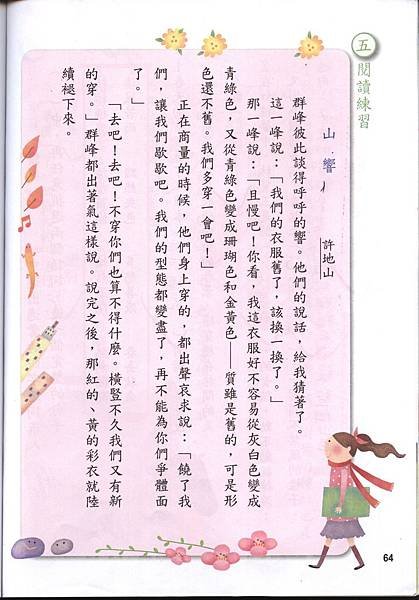 五 閱讀練習
山 響
許地山
群峰彼此談得呼呼的響。他們的說話,給我猜著了。
這一峰說:「我們的衣服舊了,該換一換了。」
那一峰說:「且慢吧!你看,我這衣服好不容易從灰白色變成
青綠色,又從青綠色變成珊瑚色和金黃色——質雖是舊的,可是形
色還不舊。我們多穿一會吧!」
正在商量的時候,他們身上穿的,都出聲哀求說:「饒了我
們,讓我們歇歇吧。我們的型態都變盡了,再不能為你們爭體面
了。」
「去吧!去吧!不穿你們也算不得什麼。橫豎不久我們又有新
的穿。」群峰都出著氣這樣說。說完之後,那紅的、黃的彩衣就陸
續褪下來。
64